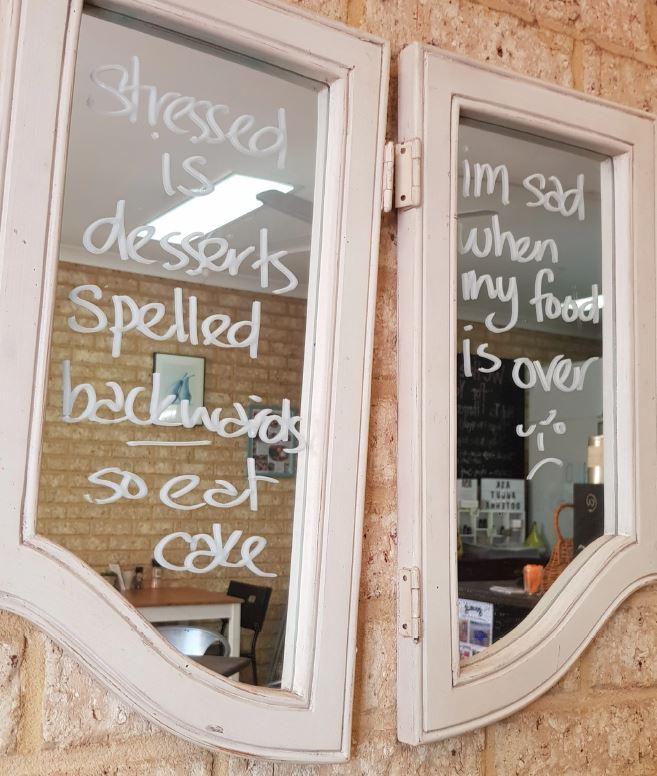 stressed
is
desserts
spelled
backwards
so eat
cake
im sad
when
my food
is over
ASK
ABOUT